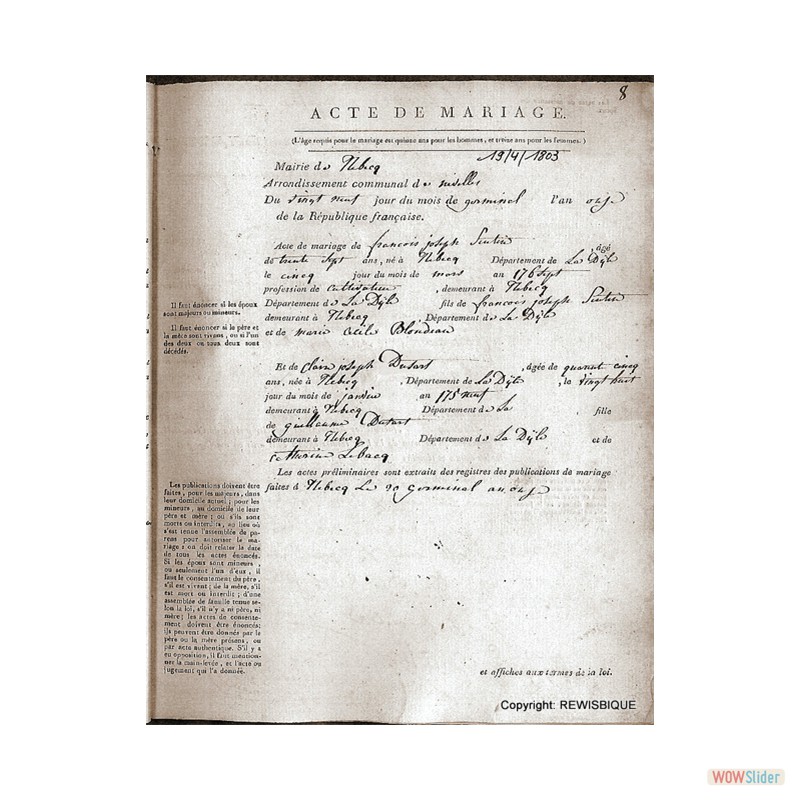 8
ACTE DE MARIAGE.
(L'âge requis pour le mariage est quinze ans pour les hommes, et treize ans pour les femmes.)
19/4/1803
Mairie de Rebecq
Arrondissement communal de nivelles
Du vingt neuf jour du mois de germinal l'an onze
de la République française.
Acte de mariage de francois joseph , âgé
de trente sept ans, né à Rebecq Département de La Dÿle
le cincq jour du mois de mars an 176 sept
profession de cultivateur , demeurant à Rebecq
Département de La Dÿle fils de francois joseph
demeurant à Rebecq Département de La Dÿle
et de marie Blondeau
Il faut énoncer si les époux
sont majeurs ou mineurs.
Il faut énoncer si le père et
la mère sont vivans, ou si l'un
des deux ou tous deux sont
décédés.
Et de claire joseph Dutart , âgée de quarant cincq
ans, née à Rebecq , Département de La Dÿle , le vingt huit
jour du mois de janvier an 175 neuf
demeurant à Rebecq Département de La , fille
de guilleaume Dutart
demeurant à Rebecq Département de La Dÿle et de
Lebacq
Les actes préliminaires sont extraits des registres des publications de mariage
faites à Rebecq Le 20 germinal an onze
Les publications doivent être
faites, pour les majeurs, dans
leur domicile actuel ; pour les
mineurs, au domicile de leur
père et mère ; ou s'ils sont
morts ou interdits, au lieu où
s'est tenue l'assemblée de pa-
rens pour autoriser le ma-
riage : on doit relater la date
de tous les actes énoncés.
Si les époux sont mineurs,
ou seulement l'un d'eux, il
faut le consentement du père,
s'il est vivant ; de la mère, s'il
est mort ou interdit ; d'une
assemblée de famille tenue se-
lon la loi, s'il n'y a ni père, ni
mère ; les actes de consente-
ment doivent être énoncés;
ils peuvent être donnés par le
père ou la mère présens, ou
par acte authentique. S'il y a
eu opposition, il faut mention-
ner la main-levée, et l'acte ou
jugement qui l'a donnée.
et affiches aux termes de la loi.
Copyright: REWISBIQUE
WOWSlider